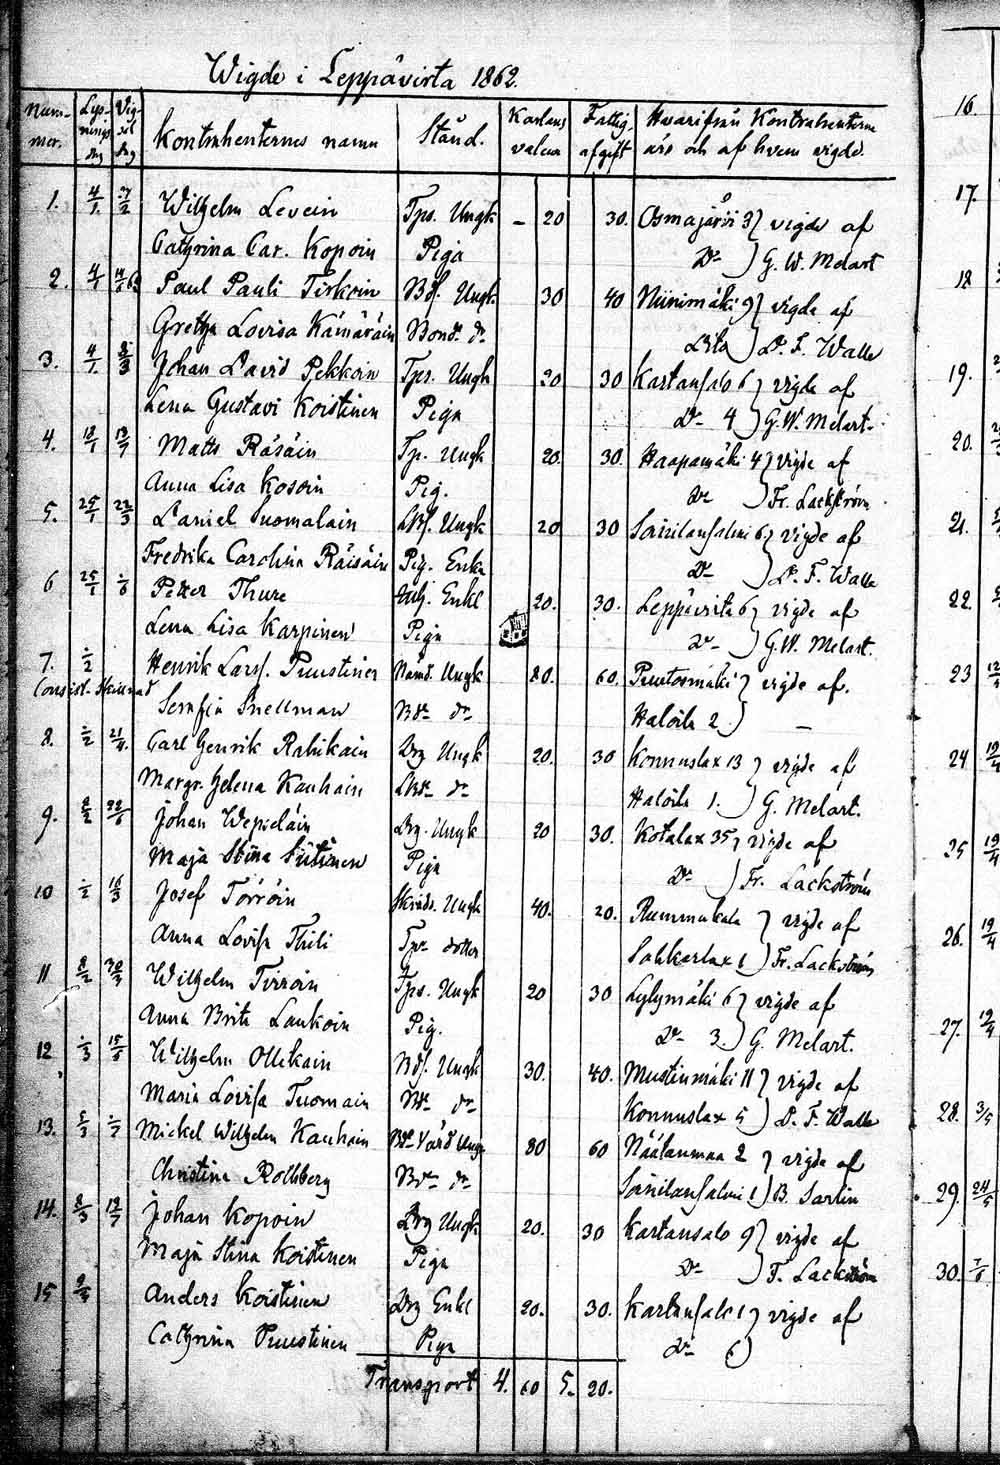 Wigde i Leppävirta 1862.
Nummer. Lysnings dag Vigsel dag Kontrahenternes namn Stånd. Karlens valeur Fattigafgift Hvarifrån Kontrahenterne äro och af hvem vigde.
1. 4/1 Wilhelm Levein Tps. Ungk – 20 30. Osmajärvi 3 } vigde af
Cathrina Car. Kopoin Piga Do } G. W. Melart
2. 4/1 Paul Pauli Tirkoin Bds. Ungk. 30 40 Niinimäki 9 } vigde af
Gretha Lovisa Kämäräin Bond. dr. Dito } D. F. Walle
3. 4/1 Johan David Pekkoin Tpr. Ungk 20 30 Kartansalo 6 } vigde af
Lena Gustavi Koistinen Piga Do 4 } G. W. Melart.
4. 18/1 Matts Räsäin Tp. Ungk 20. 30. Haapamäki 4 } vigde af
Anna Lisa Kosoin Pig. Do } Fr. Lackström
5. 25/1 23/3 Daniel Tuomalain Ungk 20 30 Soinilansalmi 6. } vigde af
Fredrika Carolina Räisäin Pig. Enka Do } D. F. Walle
6 25/1 Petter Thure Enkl 20. 30. Leppävirta 6 } vigde af
Lena Lisa Karpinen Piga Do } G. W. Melart.
7. Henrik Larss. Puustinen Nämd. Ungk 80. 60. Puutosmäki } vigde af.
Consist. Skillnad
Serafia Snellman Bd. dr. Halola 2. } –
8. 21/4. Carl Henrik Rahikain Drg Ungk 20. 30 Konnuslax 13 } vigde af
Margr. Helena Kauhain dr. Halola 1. } G. Melart.
9. 8/2 Johan Wepsäläin Drg. Ungk 20 30. Kotalax 35 } vigde af
Maja Stina Piga Do } Fr. Lackström
10 16/3 Josef Törröin Skrädd. Ungk 40. 20. Rummukala } vigde af
Anna Lovisa Thili Tpr dotter Sahkarlax 1 } Fr. Lackström
11 8/2 30/3 Wilhelm Tirroin Tps. Ungk 20 30 Lylymäki 6 } vigde af
Anna Brita Laukoin Pig. Do 3. } G. Melart.
12 Wilhelm Ollikain Bds. Ungk 30. 40. Mustinmäki 11 } vigde af
Maria Lovisa Tuomain Bd. dr. Konnuslax 5 } D. F. Walle
13. Mickel Wilhelm Kauhain 80 60 Näätänmaa 2 } vigde af
Christina Rothberg Bd. dr. Soinilansalmi 1 } B. Sarlin
14. 8/3 Johan Kopoin Drg Ungk 20. 30 Kartansalo 9 } vigde af
Maja Stina Koistinen Piga Do } F. Lackström
15 Anders Koistinen Drg Enkl 20. 30. Kartansalo 1 } vigde af
Cathrina Puustinen Piga Do
Transport 4. 60 5. 20.
16
17.
18
19.
20.
21.
22.
23 12/4
24 19/4
25 19/4
26. 19/4
27. 19/4
28. 3/5
29. 24/5
30.